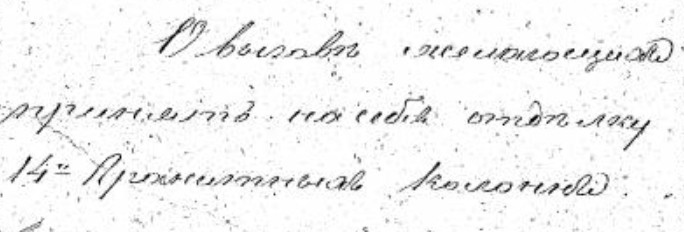 О вызовѣ желающихъ
принять на себя отдѣлку
14ти Гранитныхъ колоннъ.